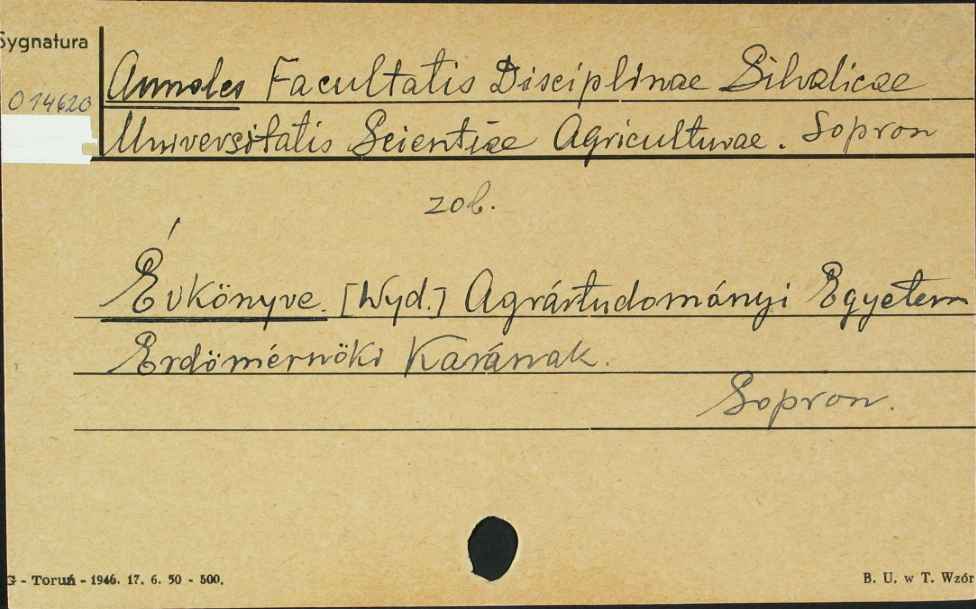 Sygnatura
Annales Facultatis Disciplinae Silvaticae
014620
Universitatis Scientiae Agriculturae. Sopron
zob.
Évkönyve. [Wyd.] Agrártudományi Egyetem
Erdömérnöki Karának.
Sopron.
G - Toruń - 1946. 17. 6. 50 - 500.
B. U. w T. Wzór